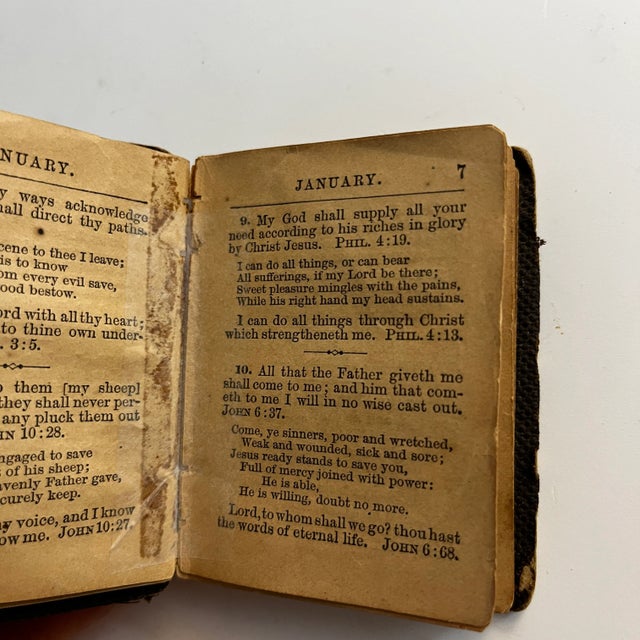 NUARY.
y ways acknowledge
hall direct thy paths.
cene to thee I leave;
is to know
om every evil save,
ood bestow.
ord with all thy heart;
to thine own under-
. 3:5.
o them [my sheep]
they shall never per-
any pluck them out
HN 10:28.
ngaged to save
t of his sheep;
avenly Father gave,
curely keep.
ny voice, and I know
ow me. JOHN 10:27.
JANUARY. 7
9. My God shall supply all your
need according to his riches in glory
by Christ Jesus. PHIL. 4:19.
I can do all things, or can bear
All sufferings, if my Lord be there;
Sweet pleasure mingles with the pains,
While his right hand my head sustains.
I can do all things through Christ
which strengtheneth me. PHIL. 4:13.
10. All that the Father giveth me
shall come to me; and him that com-
eth to me I will in no wise cast out.
JOHN 6:37.
Come, ye sinners, poor and wretched,
Weak and wounded, sick and sore;
Jesus ready stands to save you,
Full of mercy joined with power:
He is able,
He is willing, doubt no more.
Lord, to whom shall we go? thou hast
the words of eternal life. JOHN 6:68.